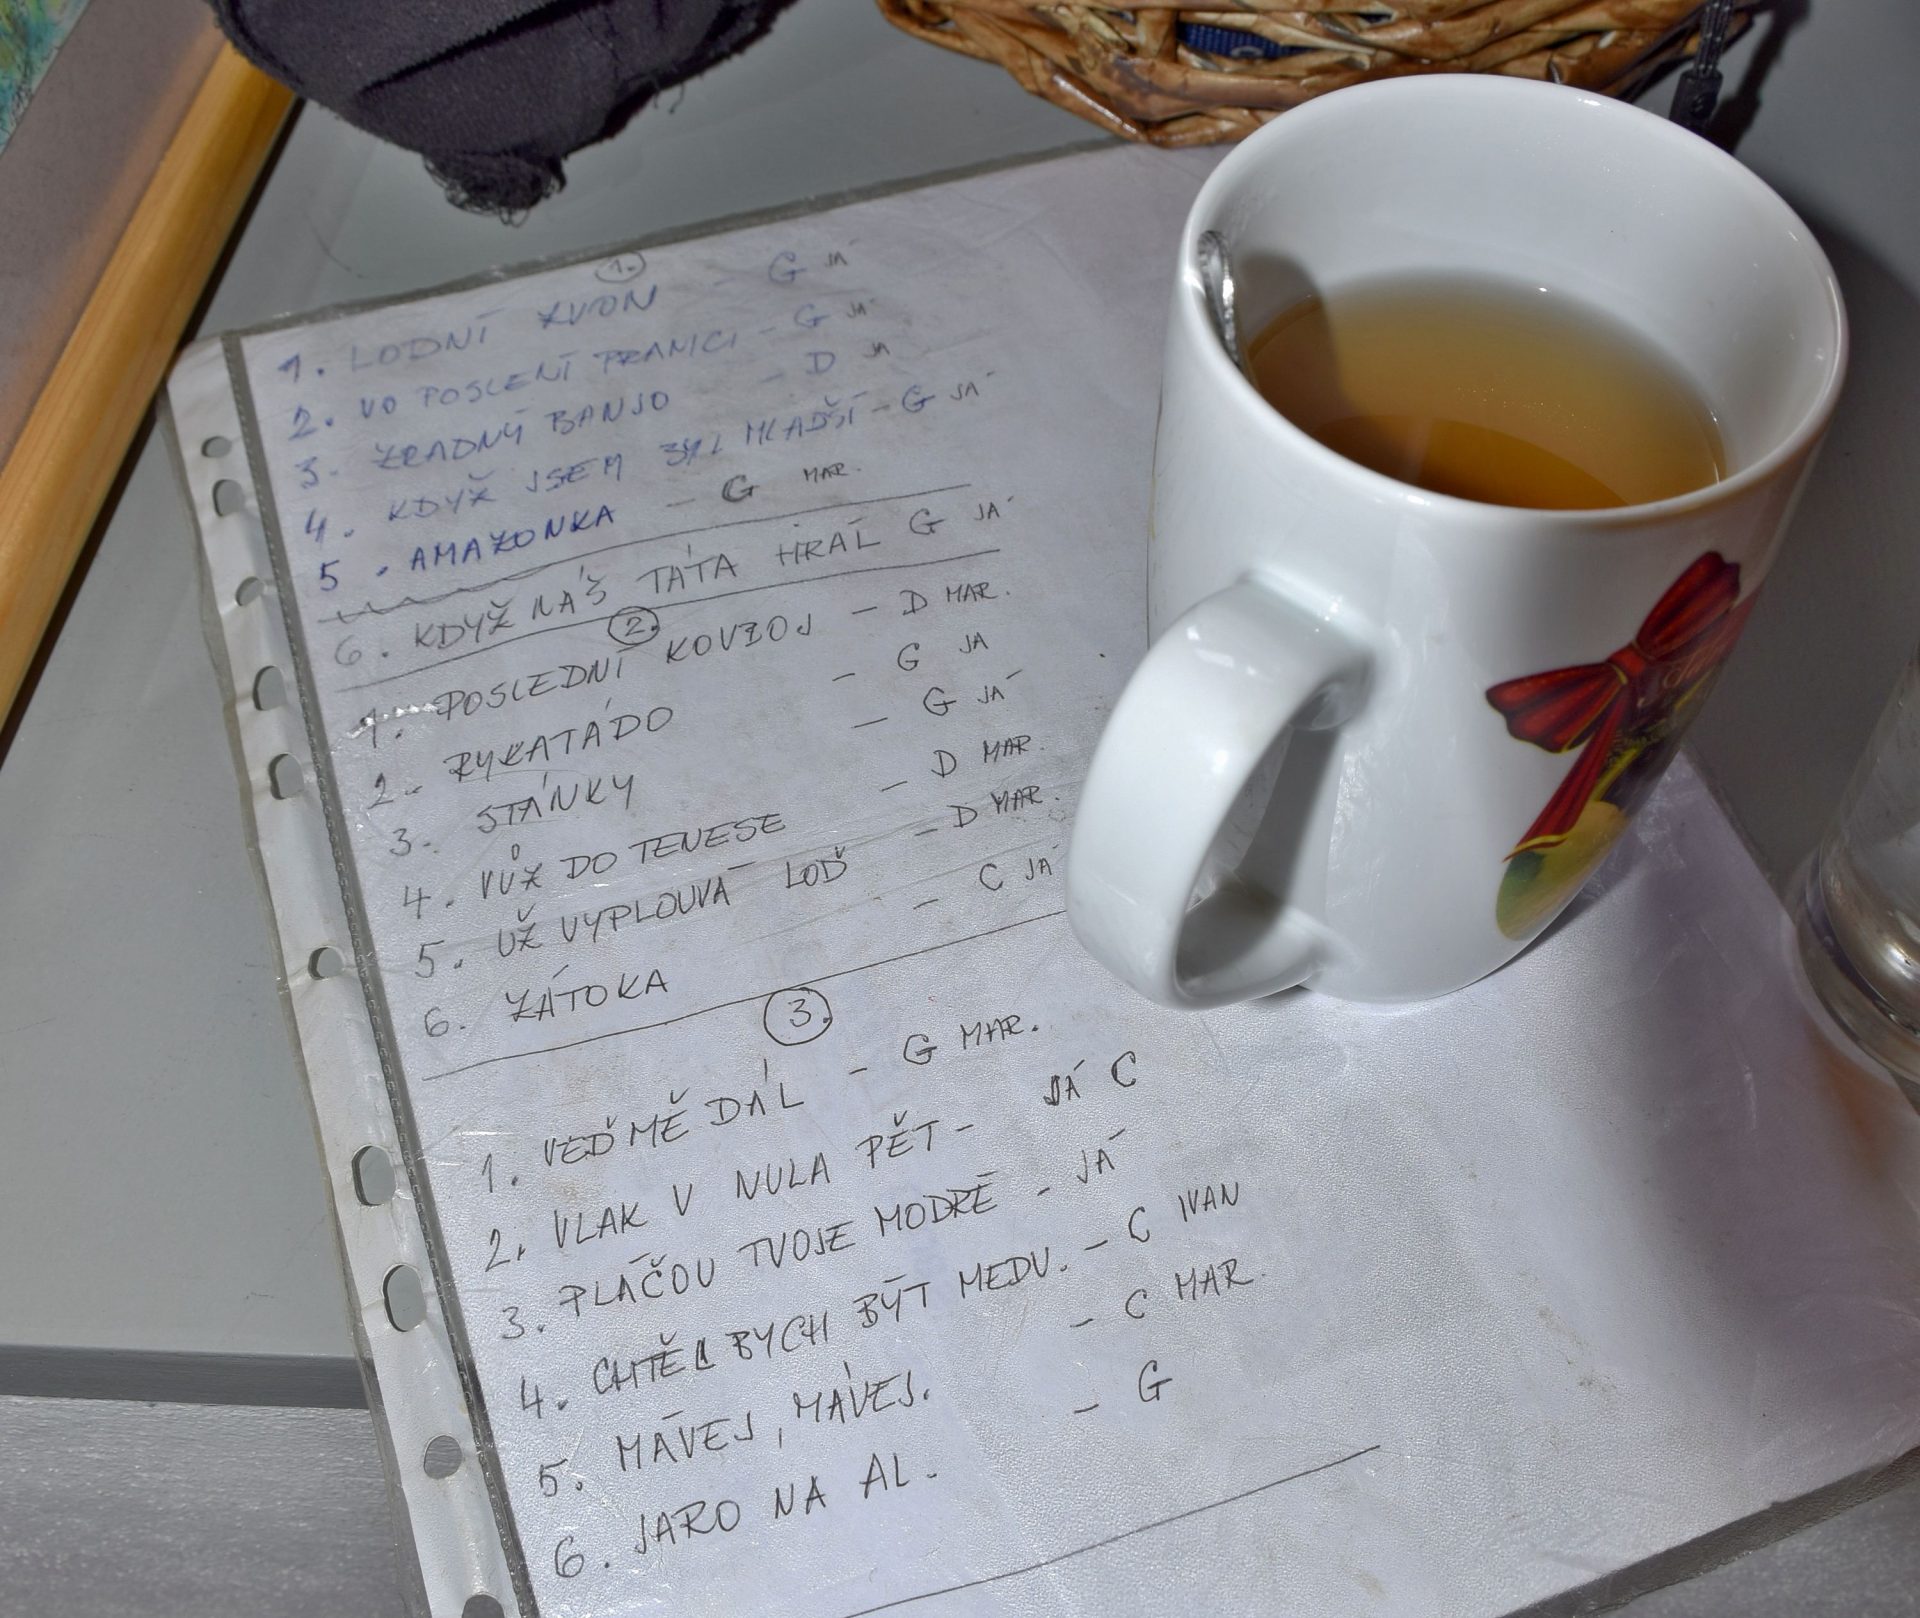 1.
1. LODNÍ ZVON - G JÁ
2. VO POSLENÍ PRANICI - G JÁ
3. ZRADNÝ BANJO - D JA
4. KDYŽ JSEM BYL MLADŠÍ - G JÁ
5. AMAZONKA - G MAR.
6. KDYŽ NÁŠ TÁTA HRÁL G JÁ
2.
1. POSLEDNÍ KOVBOJ - D MAR.
2. RYKATÁDO - G JA
3. STÁNKY - G JÁ
4. VŮZ DO TENESE - D MAR.
5. UŽ VYPLOUVÁ LOĎ - D MAR.
6. ZÁTOKA - C JÁ
3.
1. VEĎ MĚ DÁL - G MAR.
2. VLAK V NULA PĚT - JÁ C
3. PLÁČOU TVOJE MODRÉ - JÁ
4. CHTĚL BYCH BÝT MEDV. - C IVAN
5. MÁVEJ, MÁVEJ. - C MAR.
6. JARO NA AL. - G